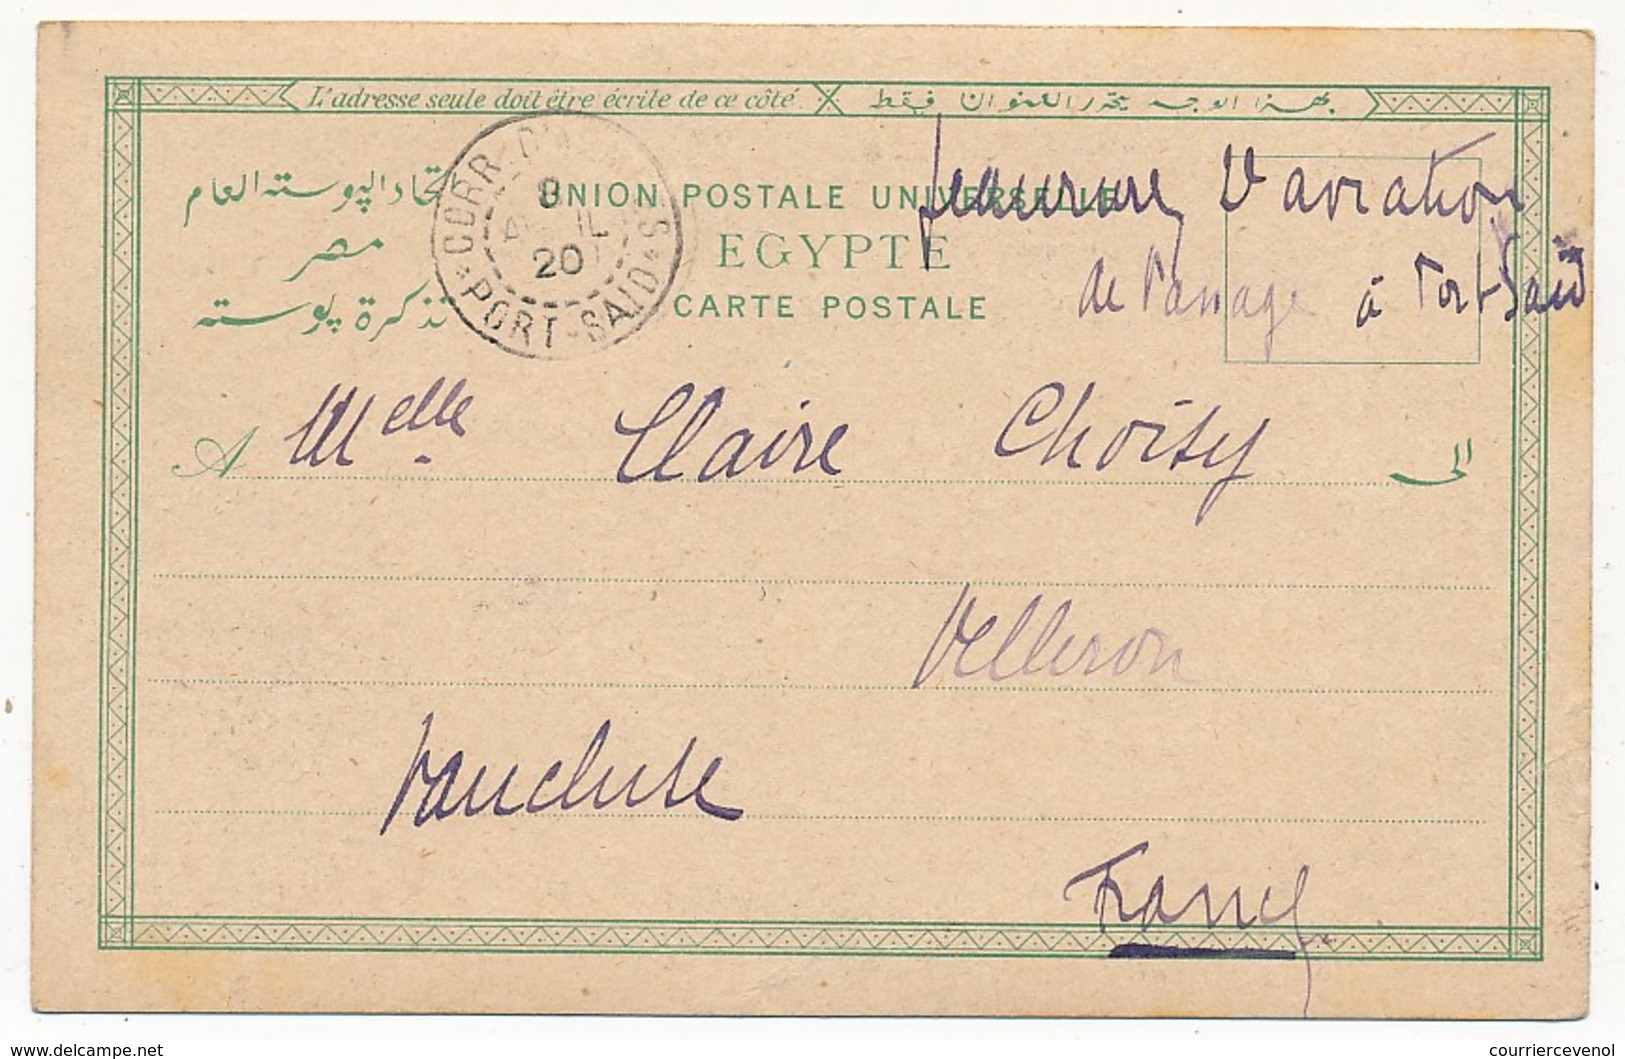 L'adresse seule doit être écrite de ce côté.
بهذا الوجه يحرر العنوان فقط
اتحاد البوسته العام
مصر
تذكرة بوسته
UNION POSTALE UNIVERSELLE
EGYPTE
CARTE POSTALE
CORR. D'ARMÉES
8
AVRIL
20
PORT-SAID
V aviation
de Passage à Port-Saïd
A Melle Claire Choisy الى
Velleron
Vaucluse
France
delcampe.net
courriercevenol